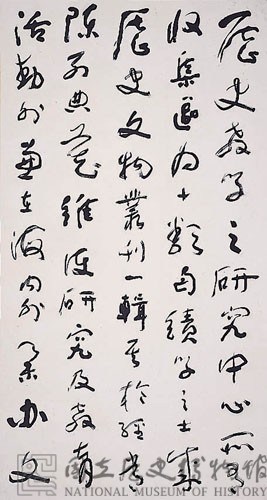 歷史教學之研究中心所有
收集區為十類自績學之士
歷史文物叢刊一輯至於經常
陳列典藏維護研究及教育
活動外並在海內外舉辦文
國立歷史博物館
NATIONAL MUSEUM OF HISTORY